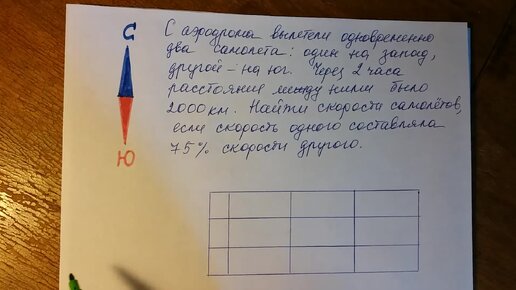 С
С аэродрома вылетели одновременно
два самолета: один на запад,
другой – на юг. Через 2 часа
расстояние между ними было
2000 км. Найти скорости самолётов,
если скорость одного составляла
75% скорости другого.
Ю